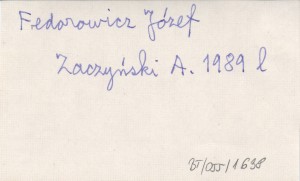 Fedorowicz Józef
Zaczyński A. 1989 l
BT/055/1698